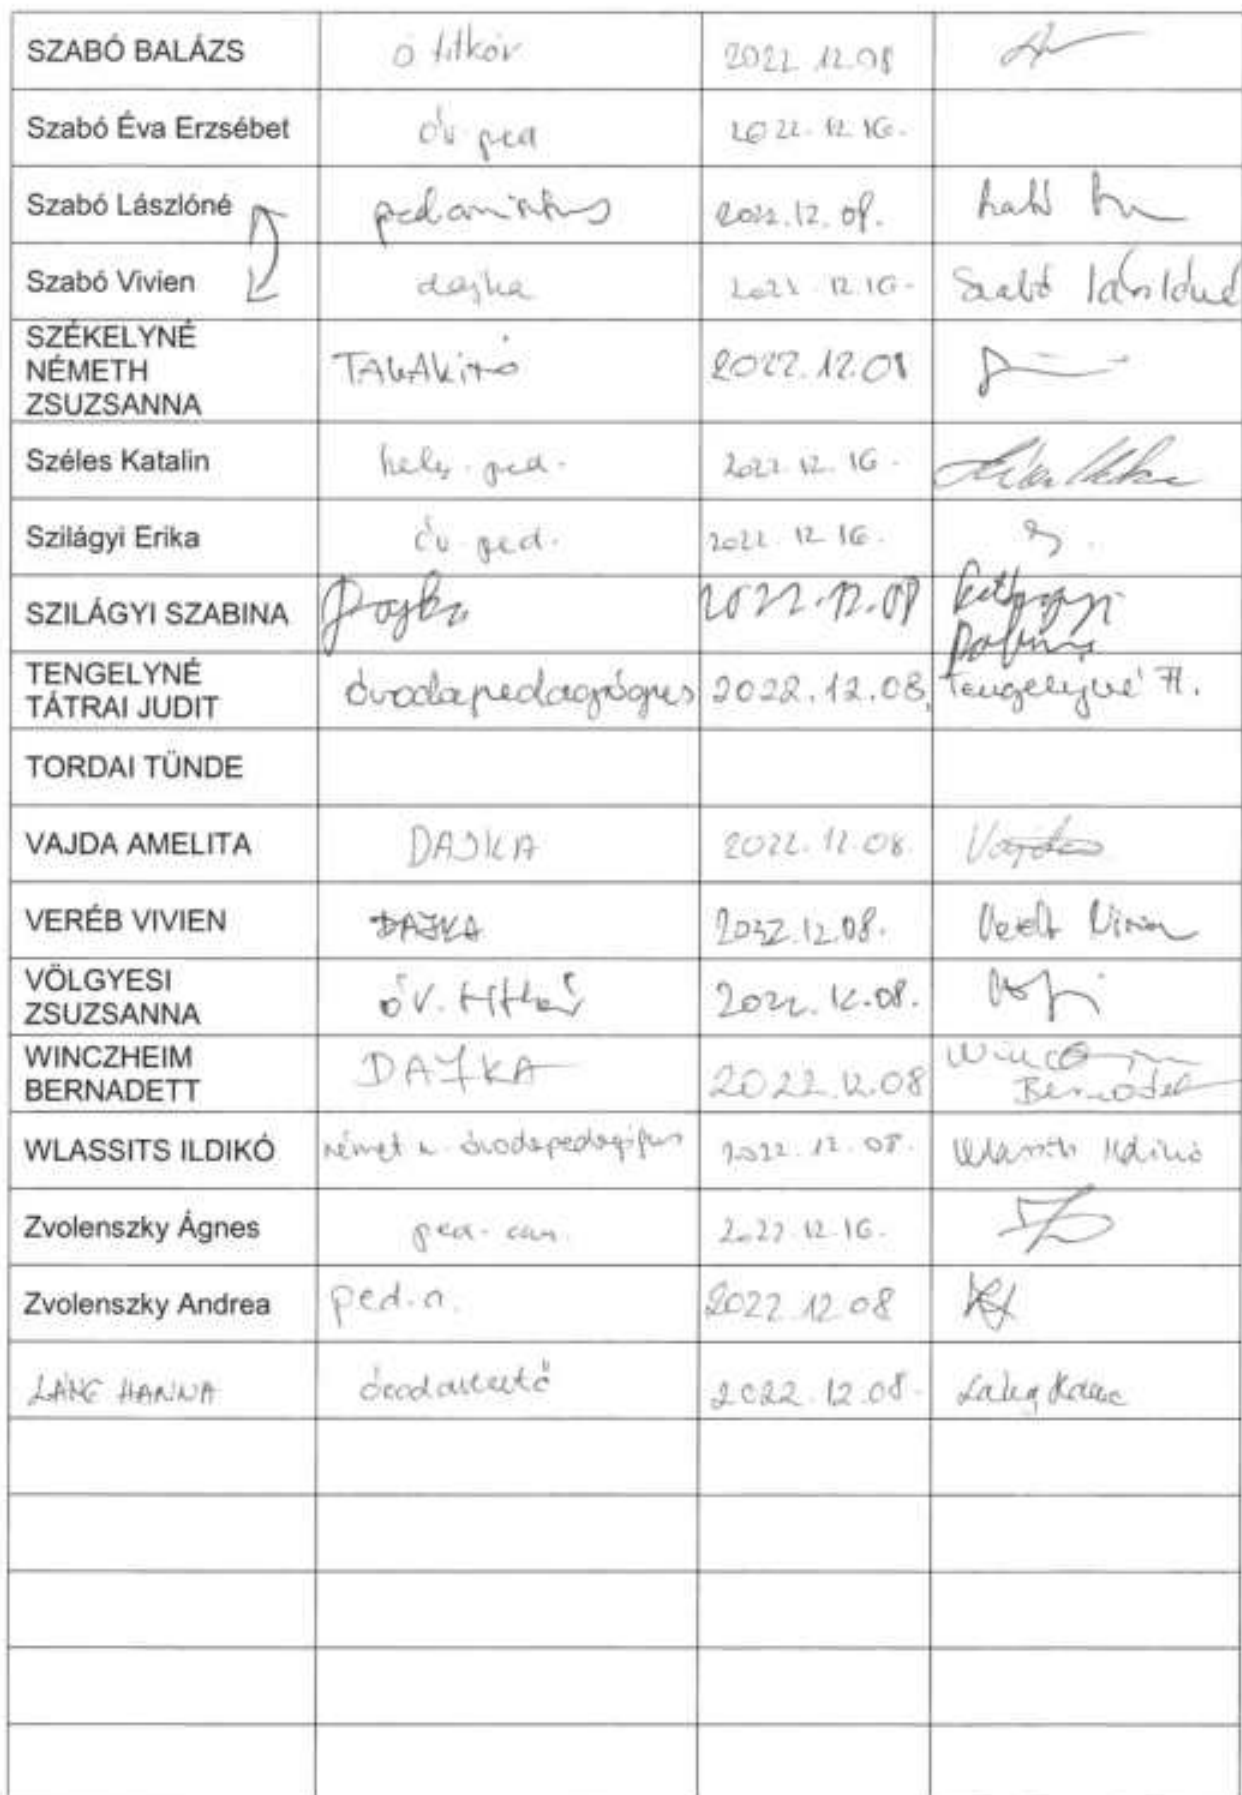 SZABÓ BALÁZS ó titkár 2022.12.08
Szabó Éva Erzsébet óv. ped 2022.12.16.
Szabó Lászlóné ped. 2022.12.08.
Szabó Vivien dajka 2022.12.16. Szabó Lászlóné
SZÉKELYNÉ
NÉMETH
ZSUZSANNA
TAKAKÍTÓ 2022.12.08
Széles Katalin hely. ped. 2022.12.16.
Szilágyi Erika óv. ped. 2022.12.16.
SZILÁGYI SZABINA Dajka 2022.12.08
TENGELYNÉ
TÁTRAI JUDIT
óvodapedagógus 2022.12.08. Tengelyné
TORDAI TÜNDE
VAJDA AMELITA DAJKA 2022.12.08. Vajda
VERÉB VIVIEN DAJKA 2022.12.08. Veréb Vivien
VÖLGYESI
ZSUZSANNA
óv. titkár 2022.12.08.
WINCZHEIM
BERNADETT
DAJKA 2022.12.08
Bernadett
WLASSITS ILDIKÓ német n. óvodapedagógus 2022.12.08. Wlassits Ildikó
Zvolenszky Ágnes ped. 2022.12.16.
Zvolenszky Andrea ped.a. 2022.12.08
LÁNG HANNA 2022.12.08. Láng Hanna